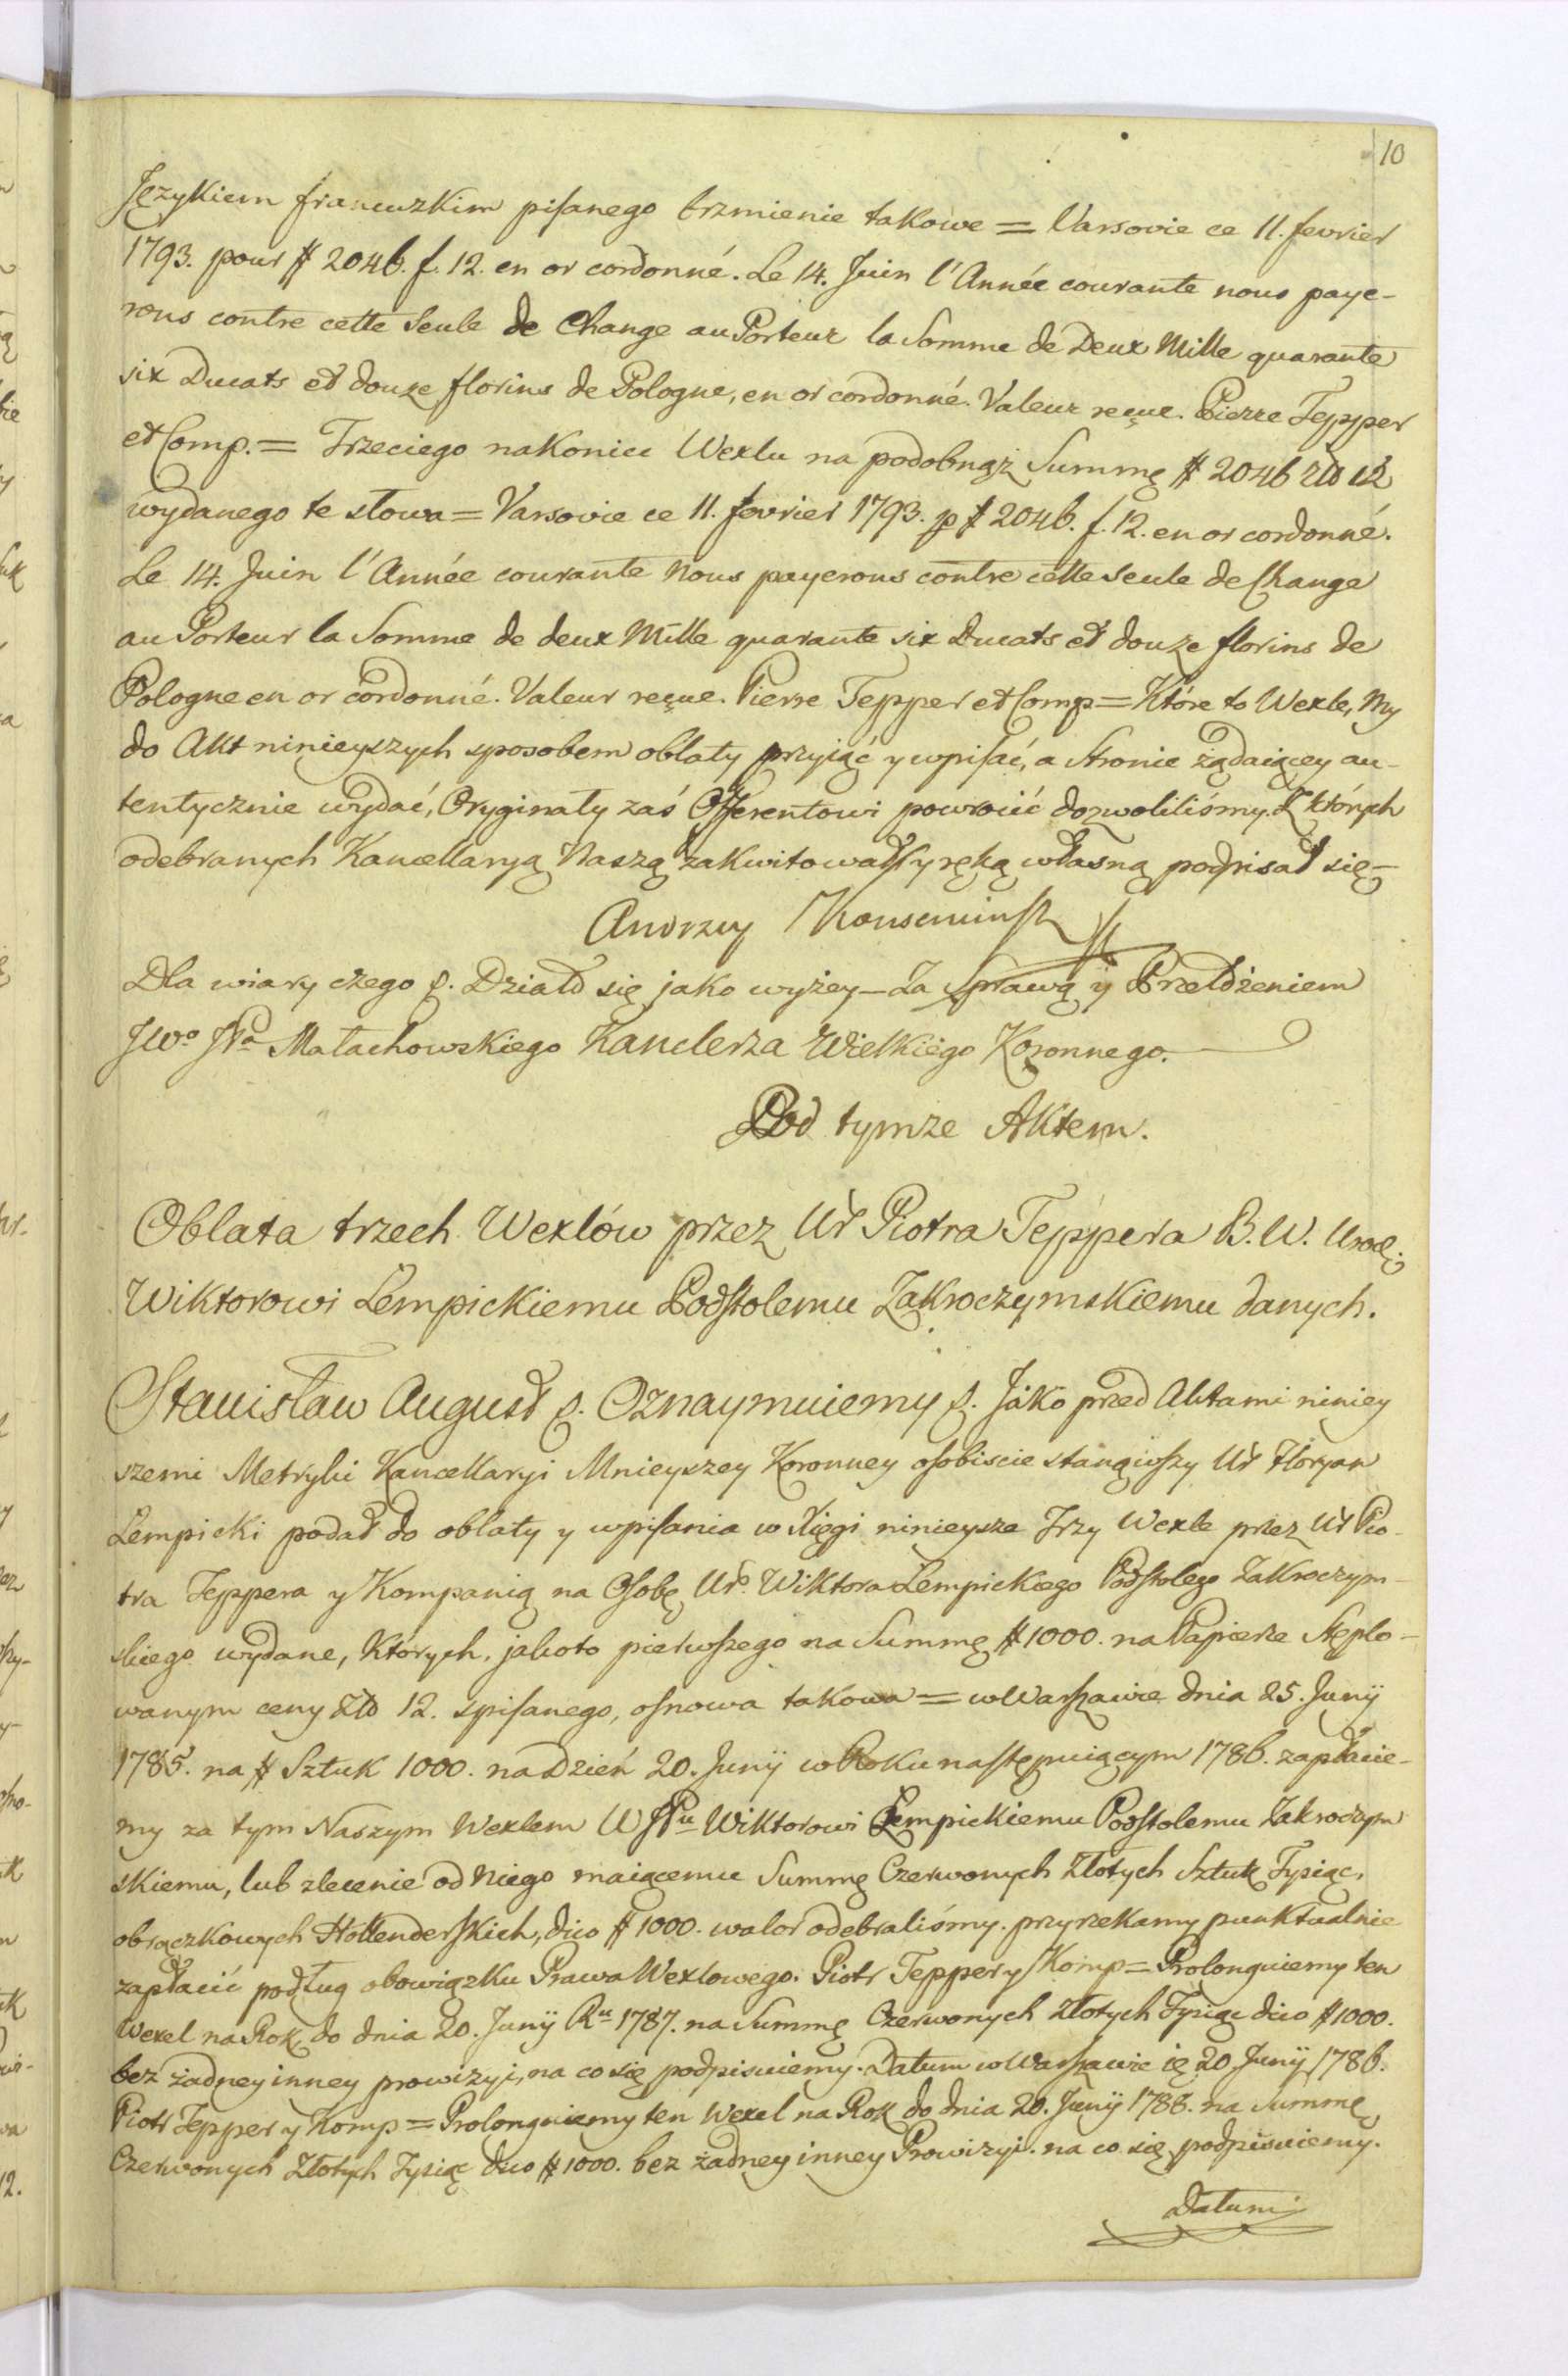 10
Językiem francuzkim pisanego brzmienie takowe = Varsovie ce 11. fevrier
1793. pour # 2046. f. 12. en or cordonné. Le 14. Juin l'Année courante nous paye-
rons contre cette Seule de Change au Porteur la Somme de Deux Mille quarante
six Ducats et douze florins de Pologne, en or cordonné. Valeur reçue. Pierre Tepper
et Comp. = Trzeciego nakoniec Wexlu na podobnąż Summę # 2046 Zło 12
wydanego te słowa = Varsovie ce 11. fevrier 1793. p # 2046. f. 12. en or cordonné.
Le 14. Juin l'Année courante Nous payerons contre cette seule de Change
au Porteur la Somme de deux Mille quarante six Ducats et douze florins de
Pologne en or cordonné. Valeur reçue. Pierre Tepper et Comp = Które to Wexle, My
do Akt ninieyszych sposobem oblaty przyiąć y wpisać, a stronie żądaiącey au-
tentycznie wydać, Oryginały zaś Offerentowi powrocić dozwoliliśmy. Z których
odebranych Kancellaryą Naszą zakwitował y ręką własną podpisał się =
Andrzey
Dla wiary czego &. Działo się jako wyżey – Za Sprawą y Przełożeniem
JWo JPa Małachowskiego Kanclerza Wielkiego Koronnego.
Pod tymże Aktem.
Oblata trzech Wexlów przez Ur Piotra Teppera B. W. Urod:
Wiktorowi Łempickiemu Podstolemu Zakroczymskiemu danych.
Stanisław August &. Oznaymuiemy &. Jako przed Aktami niniey
szemi Metryki Kancellaryi Mnieyszey Koronney osobiscie stanąwszy Ur Floryan
Łempicki podał do oblaty y wpisania w Xięgi ninieysze Trzy Wexle przez Ur Pio-
tra Teppera y Kompanią na Osobę Uro. Wiktora Łempickiego Podstolego Zakroczym-
skiego wydane, Których, jakoto pierwszego na Summę # 1000. na Papierze Stęplo-
wanym ceny Zło 12. spisanego, osnowa takowa = w Warszawie dnia 25. Junÿ
1785. na # Sztuk 1000. na Dzień 20. Junÿ w Roku następuiącym 1786. zapłacie-
my za tym Naszym Wexlem WJPu Wiktorowi Łempickiemu Podstolemu Zakroczym
skiemu, lub zlecenie od Niego maiącemu Summę Czerwonych Złotych Sztuk Tysiąc,
obrączkowych Hollenderskich, dico # 1000. walor odebraliśmy. przyrzekamy punktualnie
zapłacić podług obowiązku Prawa Wexlowego. Piotr Tepper y Komp = Prolonguiemy ten
Wexel na Rok do dnia 20. Junÿ Ru 1787. na Summę Czerwonych Złotych Tysiąc dico # 1000.
bez żadney inney prowizyi, na co się podpisuiemy. Datum w Warszawie 20 Junÿ 1786.
Piotr Tepper y Komp = Prolonguiemy ten Wexel na Rok do dnia 20. Junÿ 1788. na Summę
Czerwonych Złotych Tysiąc dico # 1000. bez żadney inney Prowizyi. na co się podpisuiemy.
Datum